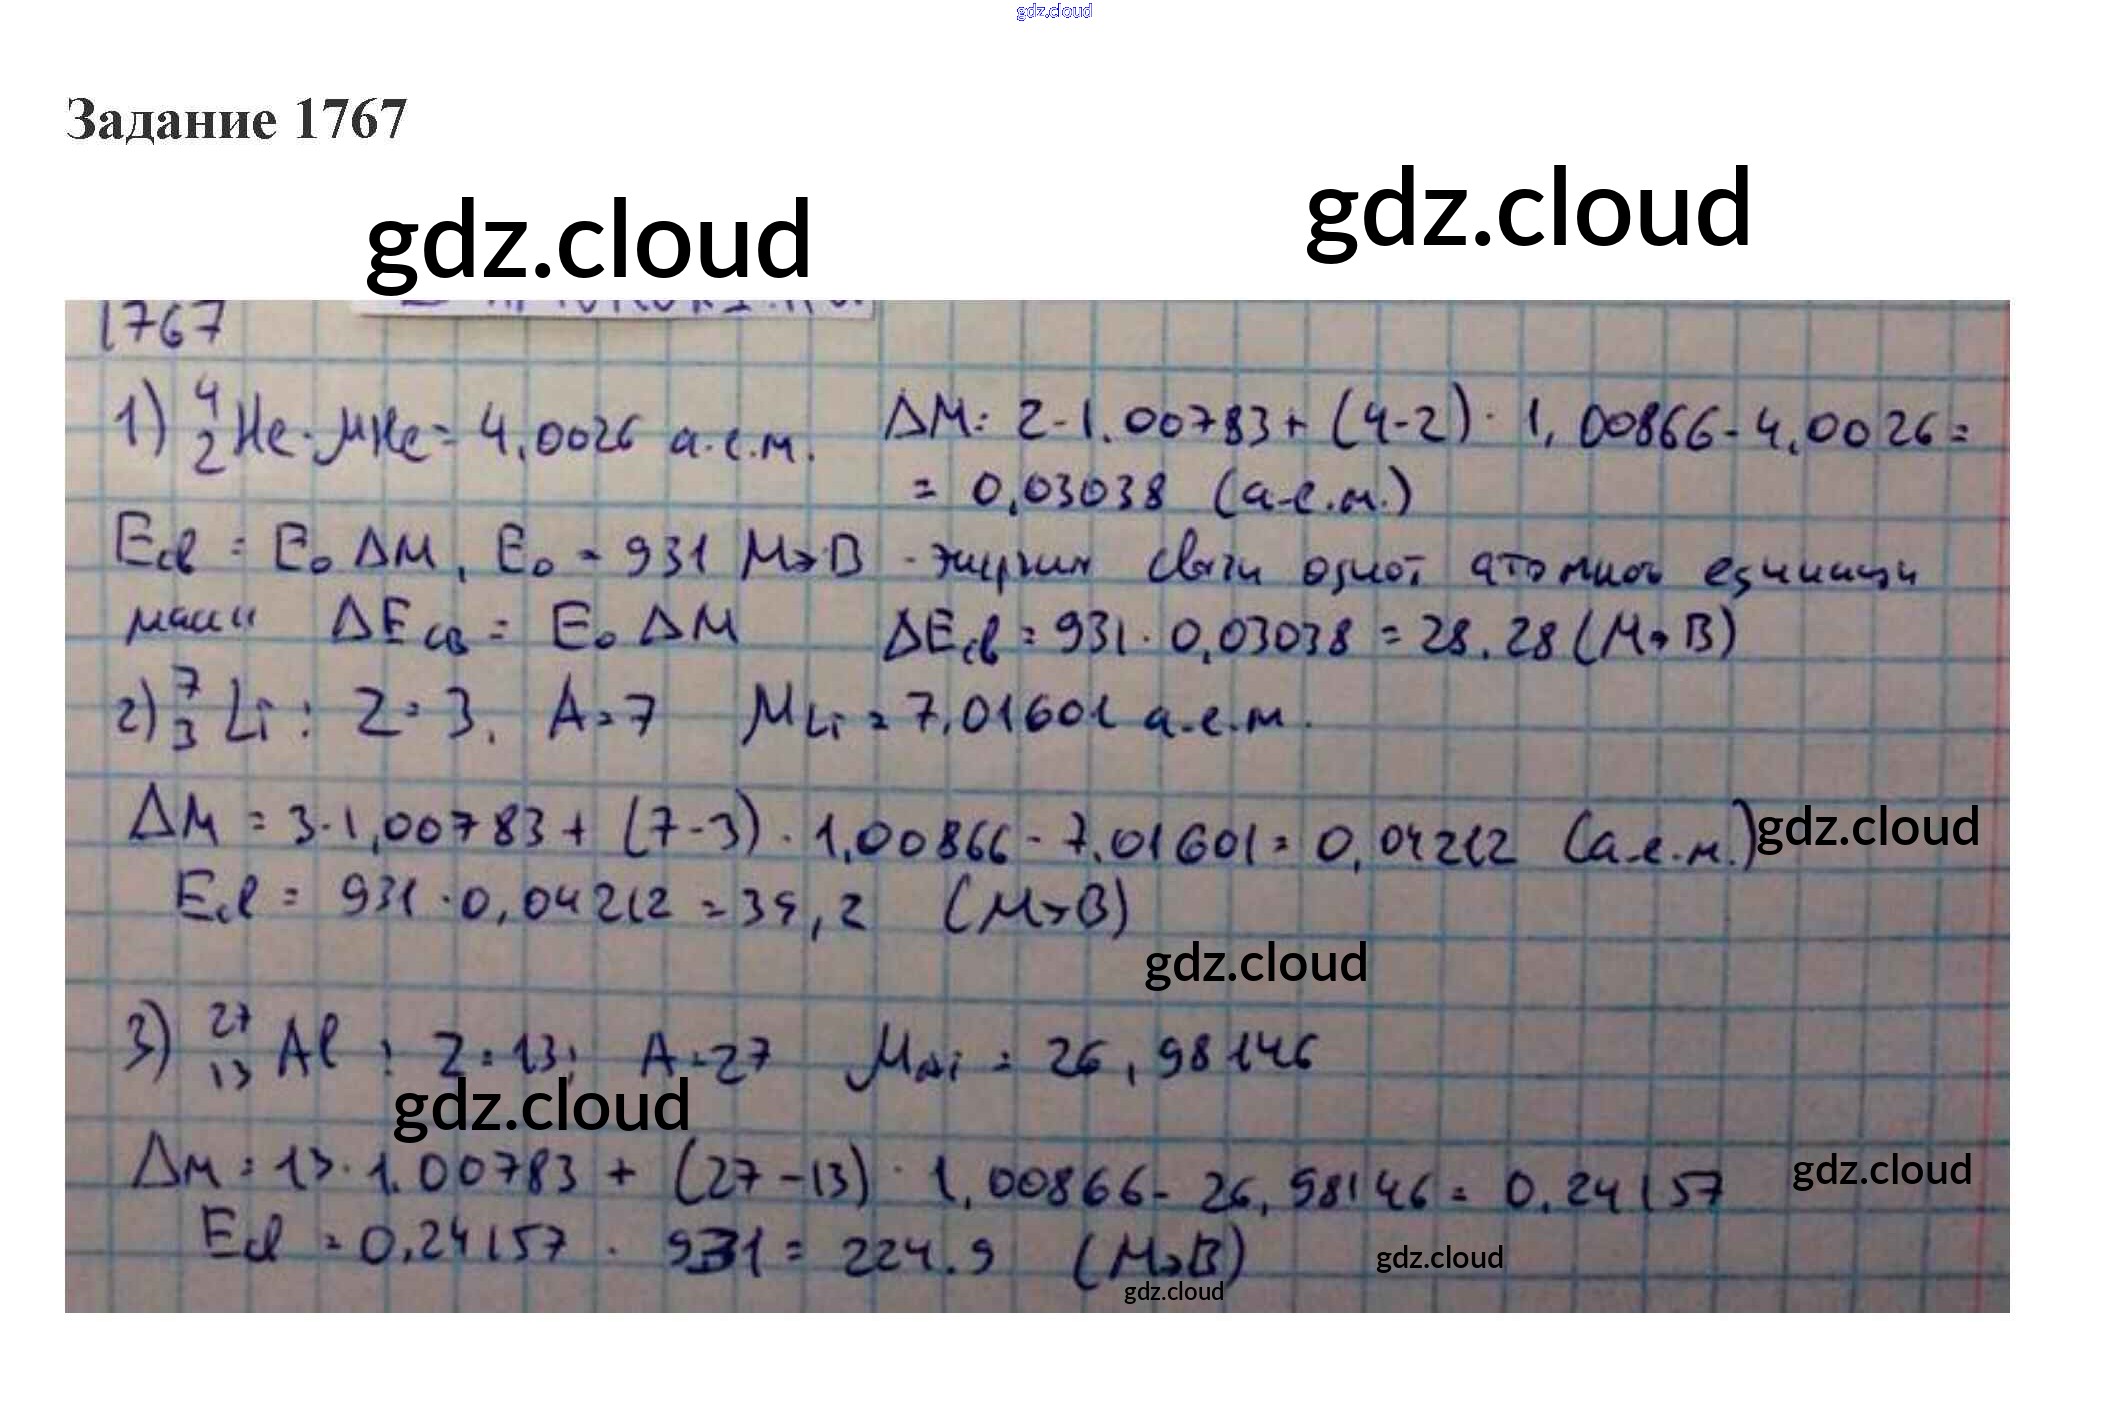 gdz.cloud
Задание 1767
gdz.cloud gdz.cloud
1767
1) ⁴₂He. MHe = 4,0026 а.е.м. ΔM = 2·1.00783 + (4-2)·1,00866 - 4,0026 =
= 0,03038 (а.е.м.)
Eсв = E₀ΔM, E₀ = 931 МэВ - энергия связи одной атомной единицы
массы ΔEсв = E₀ΔM ΔEсв = 931·0,03038 = 28.28 (МэВ)
2) ⁷₃Li: Z=3, A=7 MLi = 7,01601 а.е.м.
ΔM = 3·1,00783 + (7-3)·1,00866 - 7,01601 = 0,04212 (а.е.м.) gdz.cloud
Eсв = 931·0,04212 = 39,2 (МэВ)
gdz.cloud
3) ²⁷₁₃Al: Z=13; A=27 = 26,98146
gdz.cloud
ΔM = 13·1.00783 + (27-13)·1,00866 - 26,98146 = 0.24157
gdz.cloud
Eсв = 0,24157 · 931 = 224.9 (МэВ)
gdz.cloud
gdz.cloud